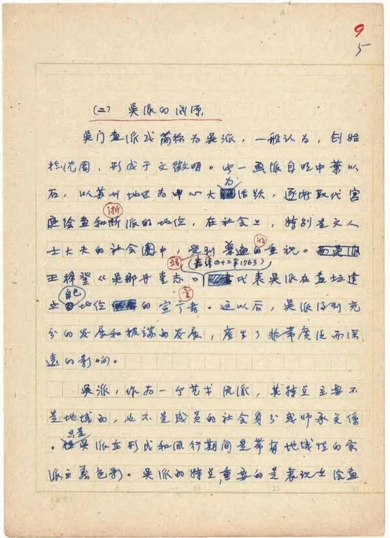 9
5
(二) 吴派的成源
吴门画派或简称为吴派，一般认为，创始
于沈周，形成于文徵明。此一画派自明中叶以
后，以苏州地区为中心大为活跃，逐渐取代宫
廷绘画和浙派的地位，在社会上，特别是文人
士大夫的社会圈中，受到普遍的重视。
王穉登《吴郡丹青志》(嘉靖四十二年1563)，代表吴派在画坛建
立自己地位的宣言书。这以后，吴派得到充
分的发展和极端的发展，产生了非常广泛而深
远的影响。
吴派，作为一个艺术流派，其特征主要不
是地域的，也不是成员的社会身分或师承关系
。只是吴派在形成和流行期间是带有地域性的宗
派主义色彩。吴派的特点重要的是表现在绘画